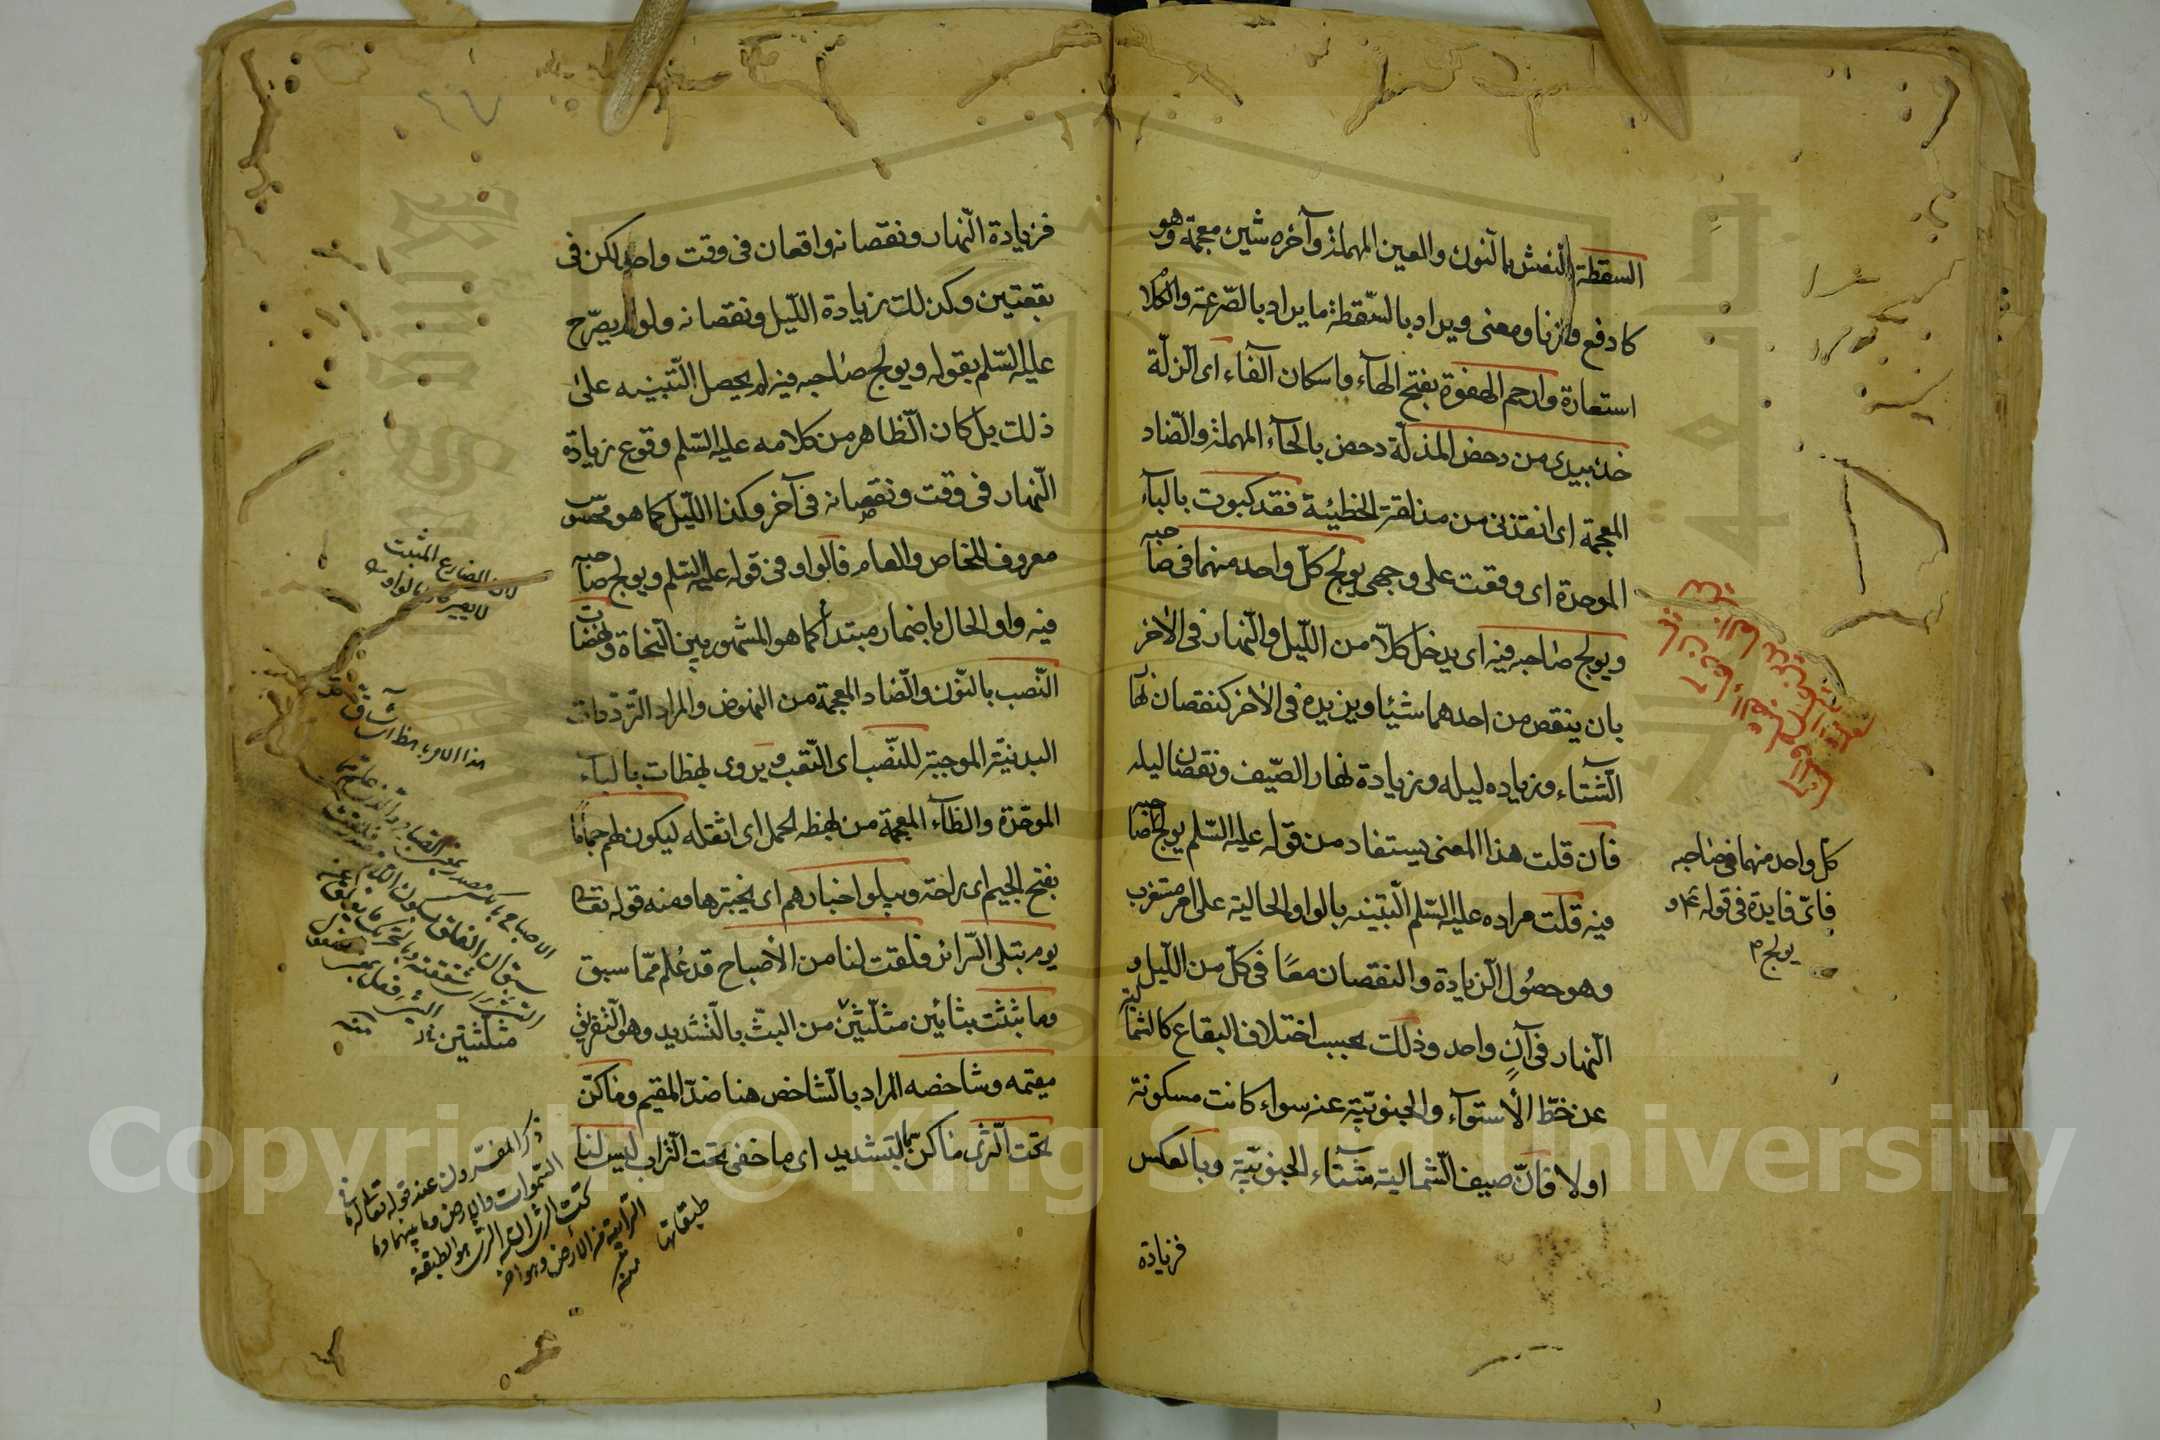 السقطة النعش بالنون والعين المهملة وآخره شين معجمة وهو
كادفع وزنا ومعنى ويراد بالسّقطة ما يراد بالصّرعة والكلا
استعارة وارحم الهفوة بفتح الهآء واسكان الفاء اى الزلّة
خذ بيدى من دحض المذلّة دحض بالحآء المهملة والضّاد
المعجمة اى انقذنى من مزلقة الخطيئة فقد كبوت بالبآء
الموحدة اى وقعت على وجهى يولج كلّ واحد منهما فى صاحبه
ويولج صاحبه فيه اى يدخل كلّا من اللّيل والنّهار فى الآخر
بان ينقص من احدهما شيئا ويزيده فى الآخر كنقصان نهار
الشّتاء وزياده ليله وزيادة نهار الصّيف ونقصان ليله
فان قلت هذا المعنى يستفاد من قوله عليه السّلم يولج
فيه قلت مراده عليه السّلم التّنبيه بالواو الحالية على امر مستغرب
وهو حصُول الزّيادة والنقصان معًا فى كلّ من اللّيل و
النّهار فى آنٍ واحد وذلك بحسب اختلاف البقاع كالشّمالية
عن خطّ الاستوآء والجنوبيّة عنه سواء كانت مسكونة
اولا فانّ صيف الشّمالية شتآء الجنوبيّة وبالعكس
فزيادة
كل واحد منهما فى صاحبه
فاىّ فايدة فى قوله ع و
يولج
فزيادة النّهار ونقصانه واقعان فى وقت واحد لكن فى
بقعتين وكذلك زيادة اللّيل ونقصانه ولو لم يصرّح
عليه السّلم بقوله ويولج صاحبه فيه لم يحصل التّنبيه على
ذلك بل كان الظّاهر من كلامه عليه السّلم وقوع زيادة
النّهار فى وقت ونقصانه فى آخر وكذا اللّيل كما هو محسوس
معروف للخاص والعام فالواو فى قوله عليه السّلم ويولج صاحبه
فيه واو الحال باضمار مبتدأ كما هو المشهور بين النّحاة ونهضات
النّصب بالنّون والضّاد المعجمة من النهوض والمراد التّردّدات
البدنيّة الموجبة للنّصب اى التّعب ويروى بهظات بالبآء
الموحّدة والظآء المعجمة من بهظه الحمل اى اثقله ليكون لهم جمامًا
بفتح الجيم اى راحة ويبلو اخبارهم اى يختبرها ومنه قوله تعالى
يوم تبلى السّرائر فلقت لنا من الأصباح قد عُلم ممّا سبق
وما بثثت بثائين مثلّثتين من البثّ بالتّشديد وهو التّفريق
مقيمه وشاخصه المراد بالشّاخص هنا ضدّ المقيم وما كنّ
تحت الثّرى ما كنّ بالتّشديد اى ما خفى تحت التّراب ليس لنا
لان المضارع المثبت
مثلّثتين
ذكر المفسّرون عند قوله تعالى
السّموات والارض وما بينهما وما
تحت الثرى ان الثرى هو الطبقة
الرّابعة من الأرض وهو آخر
طبقاتها
منه